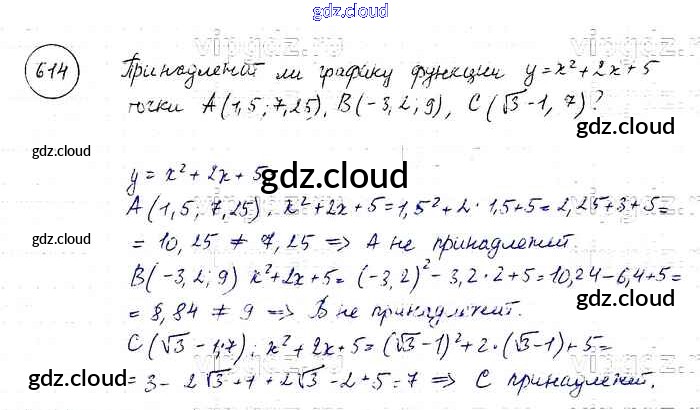 gdz.cloud
614 Принадлежит ли графику функции y = x² + 2x + 5
точки A(1,5; 7,25), B(-3,2; 9), C(√3 - 1, 7)?
gdz.cloud
gdz.cloud
y = x² + 2x + 5
gdz.cloud
A(1,5; 7,25): x² + 2x + 5 = 1,5² + 2 · 1,5 + 5 = 2,25 + 3 + 5 =
gdz.cloud
= 10,25 ≠ 7,25 => A не принадлежит.
gdz.cloud
B(-3,2; 9) x² + 2x + 5 = (-3,2)² - 3,2 · 2 + 5 = 10,24 - 6,4 + 5 =
= 8,84 ≠ 9 => B не принадлежит.
gdz.cloud
C(√3 - 1; 7): x² + 2x + 5 = (√3 - 1)² + 2 · (√3 - 1) + 5 =
gdz.cloud
= 3 - 2√3 + 1 + 2√3 - 2 + 5 = 7 => C принадлежит.
gdz.cloud